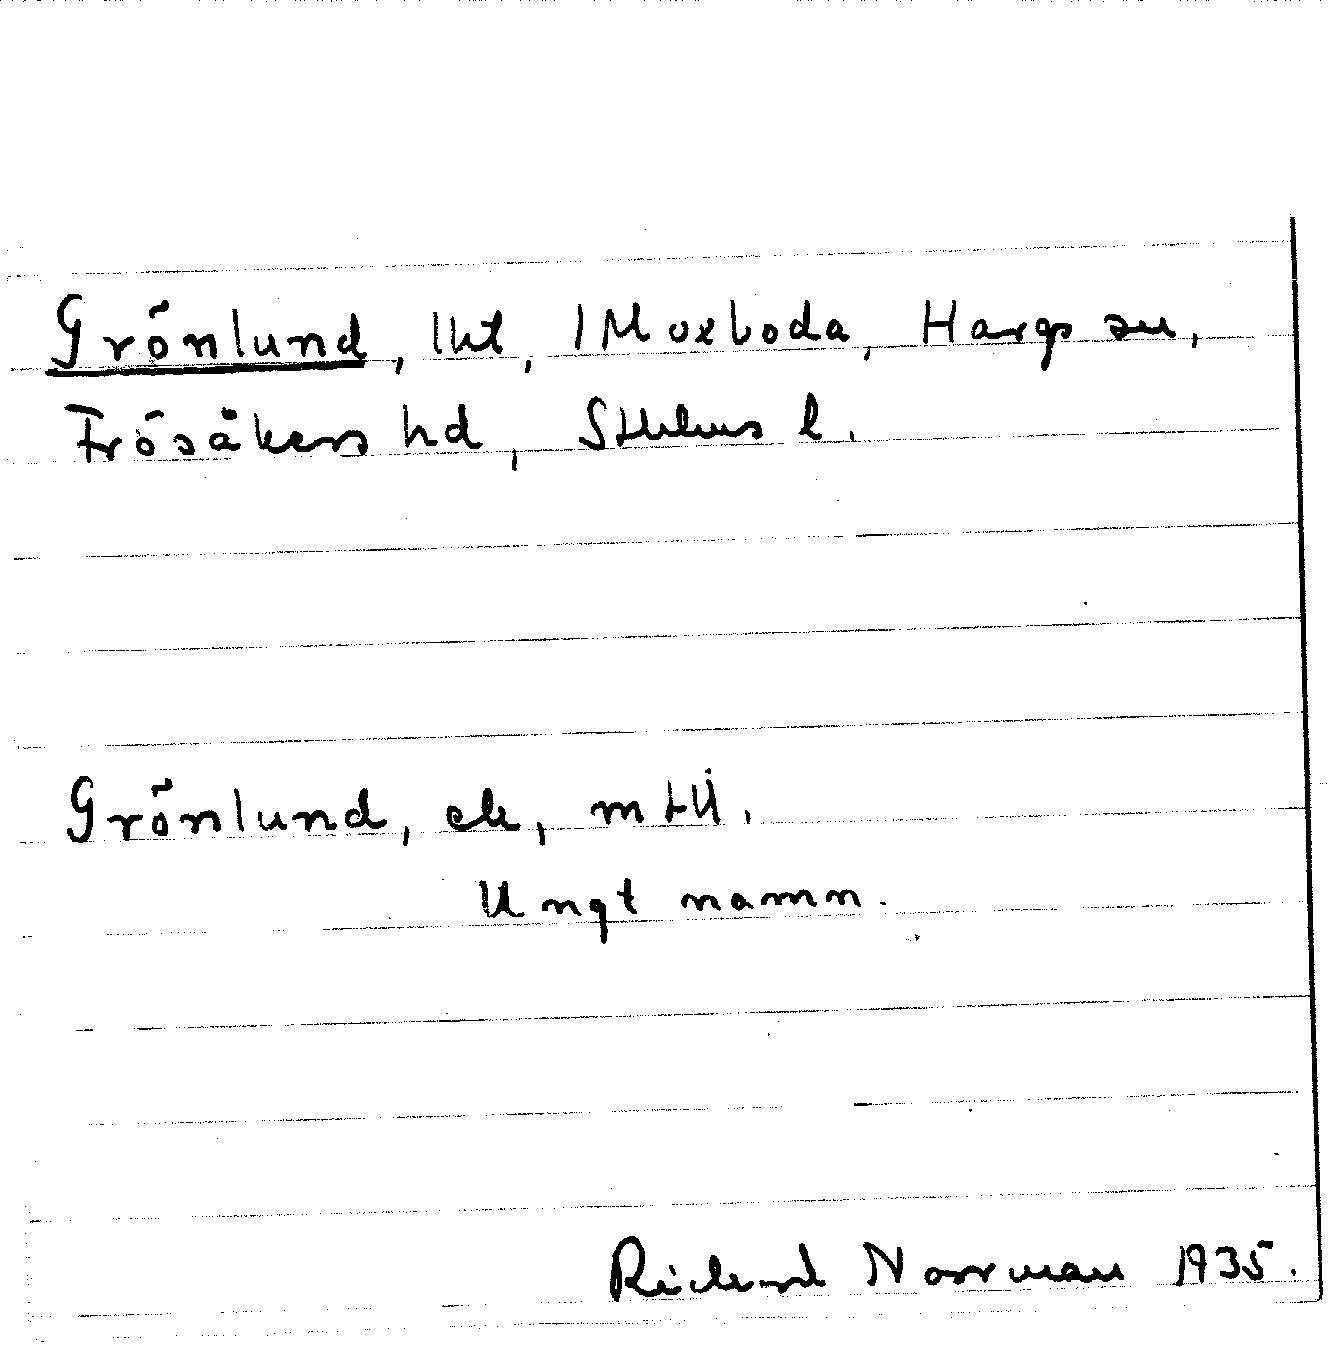 Grönlund, lht, 1 Moxboda, Hargs sn,
Frösåkers hd, Sthlms l.
Grönlund, ek,
Ungt namn.
Richard Norrman 1935.